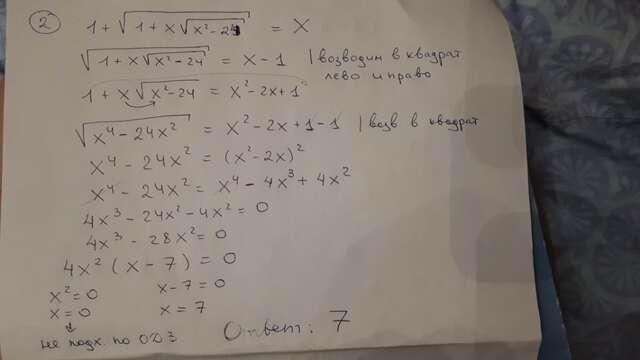 ② 1 + √(1 + x√(x² - 24)) = x
√(1 + x√(x² - 24)) = x - 1 | возводим в квадрат
лево и право
1 + x√(x² - 24) = x² - 2x + 1
√(x⁴ - 24x²) = x² - 2x + 1 - 1 | возв в квадрат
x⁴ - 24x² = (x² - 2x)²
x⁴ - 24x² = x⁴ - 4x³ + 4x²
4x³ - 24x² - 4x² = 0
4x³ - 28x² = 0
4x² (x - 7) = 0
x² = 0 x - 7 = 0
x = 0 x = 7
↓
не подх. по ОДЗ Ответ: 7